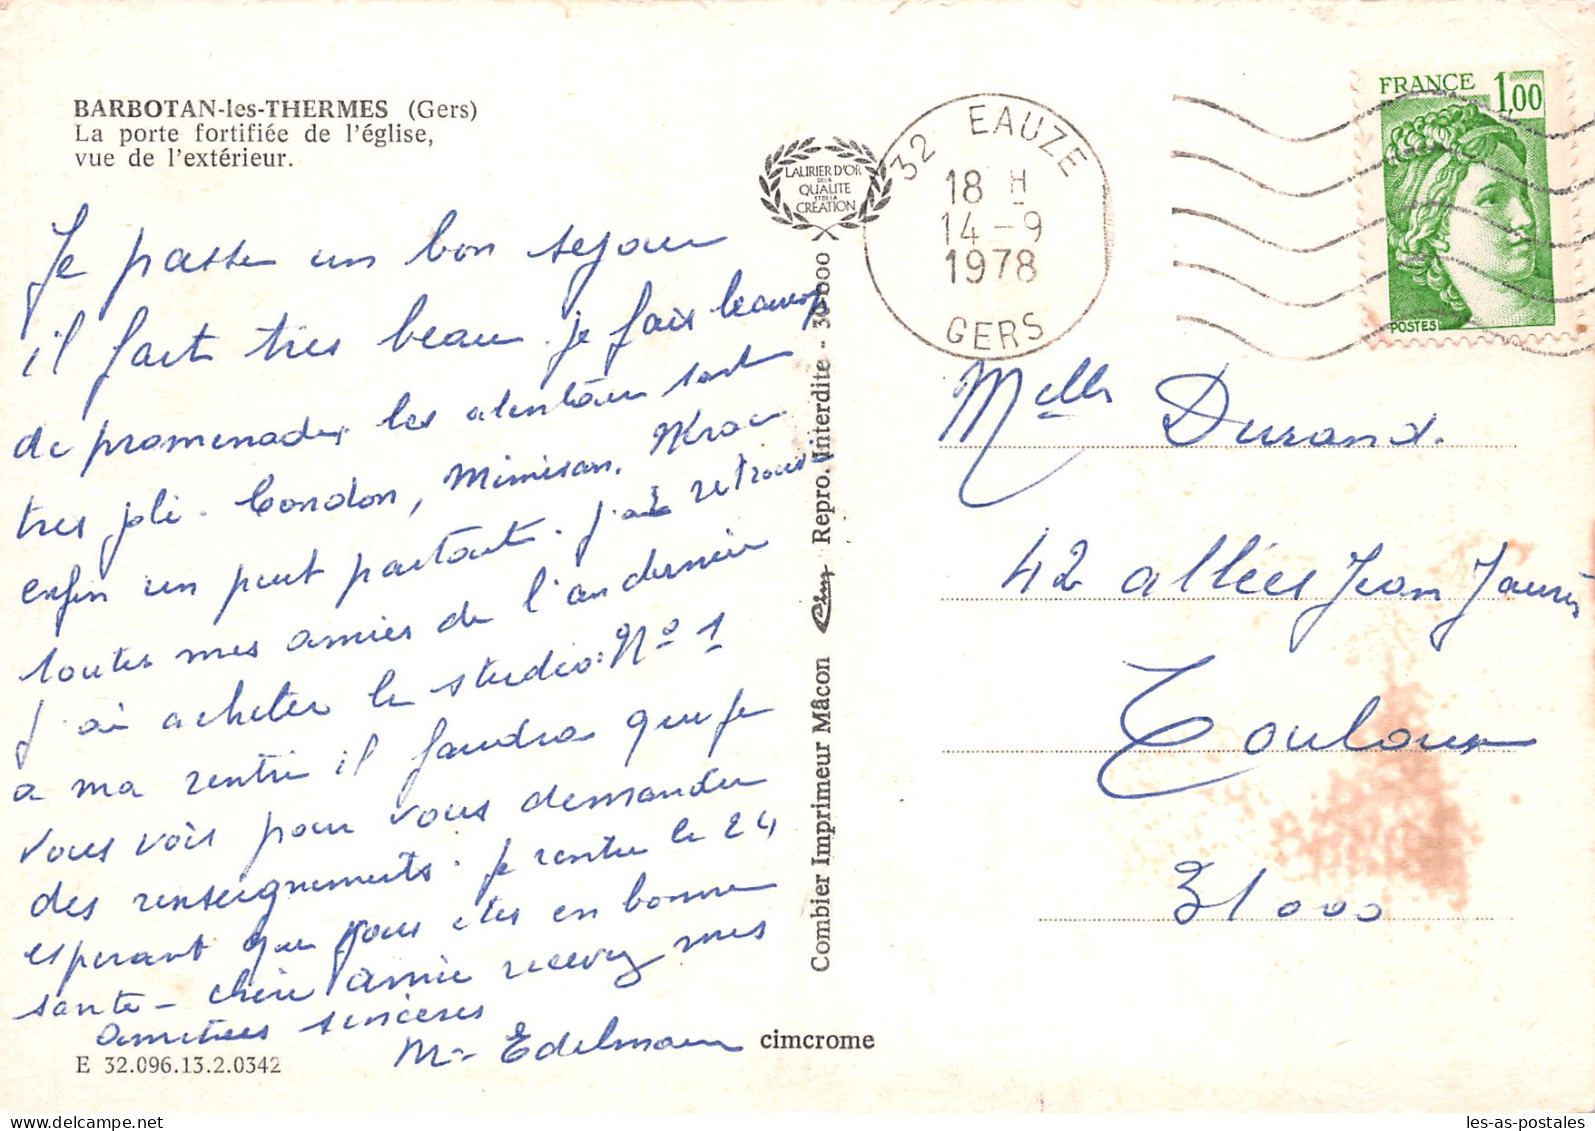 BARBOTAN-les-THERMES (Gers)
La porte fortifiée de l'église,
vue de l'extérieur.
Je passe un bon sejour
il fait tres beau. je fais beaucoup
de promenades, les alentour sont
tres joli. Condon, Mimisan.
enfin un peut partout. J'ai retrouve
toutes mes amies de l'an dernier
J'ai acheter le studio: No 1
a ma rentré il faudra que je
vous vois pour vous demander
des renseignements. je rentre le 24
esperant que vous etes en bonne
sante - chère amie recevez mes
amitiees sincères
Me Edelmann
E 32.096.13.2.0342
LAURIER D'OR
DE LA
QUALITE
ET DE LA
CRÉATION
Combier Imprimeur Mâcon Cim Repro. Interdite - 30.000
cimcrome
32 EAUZE
18 H
14-9
1978
GERS
FRANCE 1,00
POSTES
Melle Durand.
42 allées Jean Jaurès
Toulouse
31000
les-as-postales